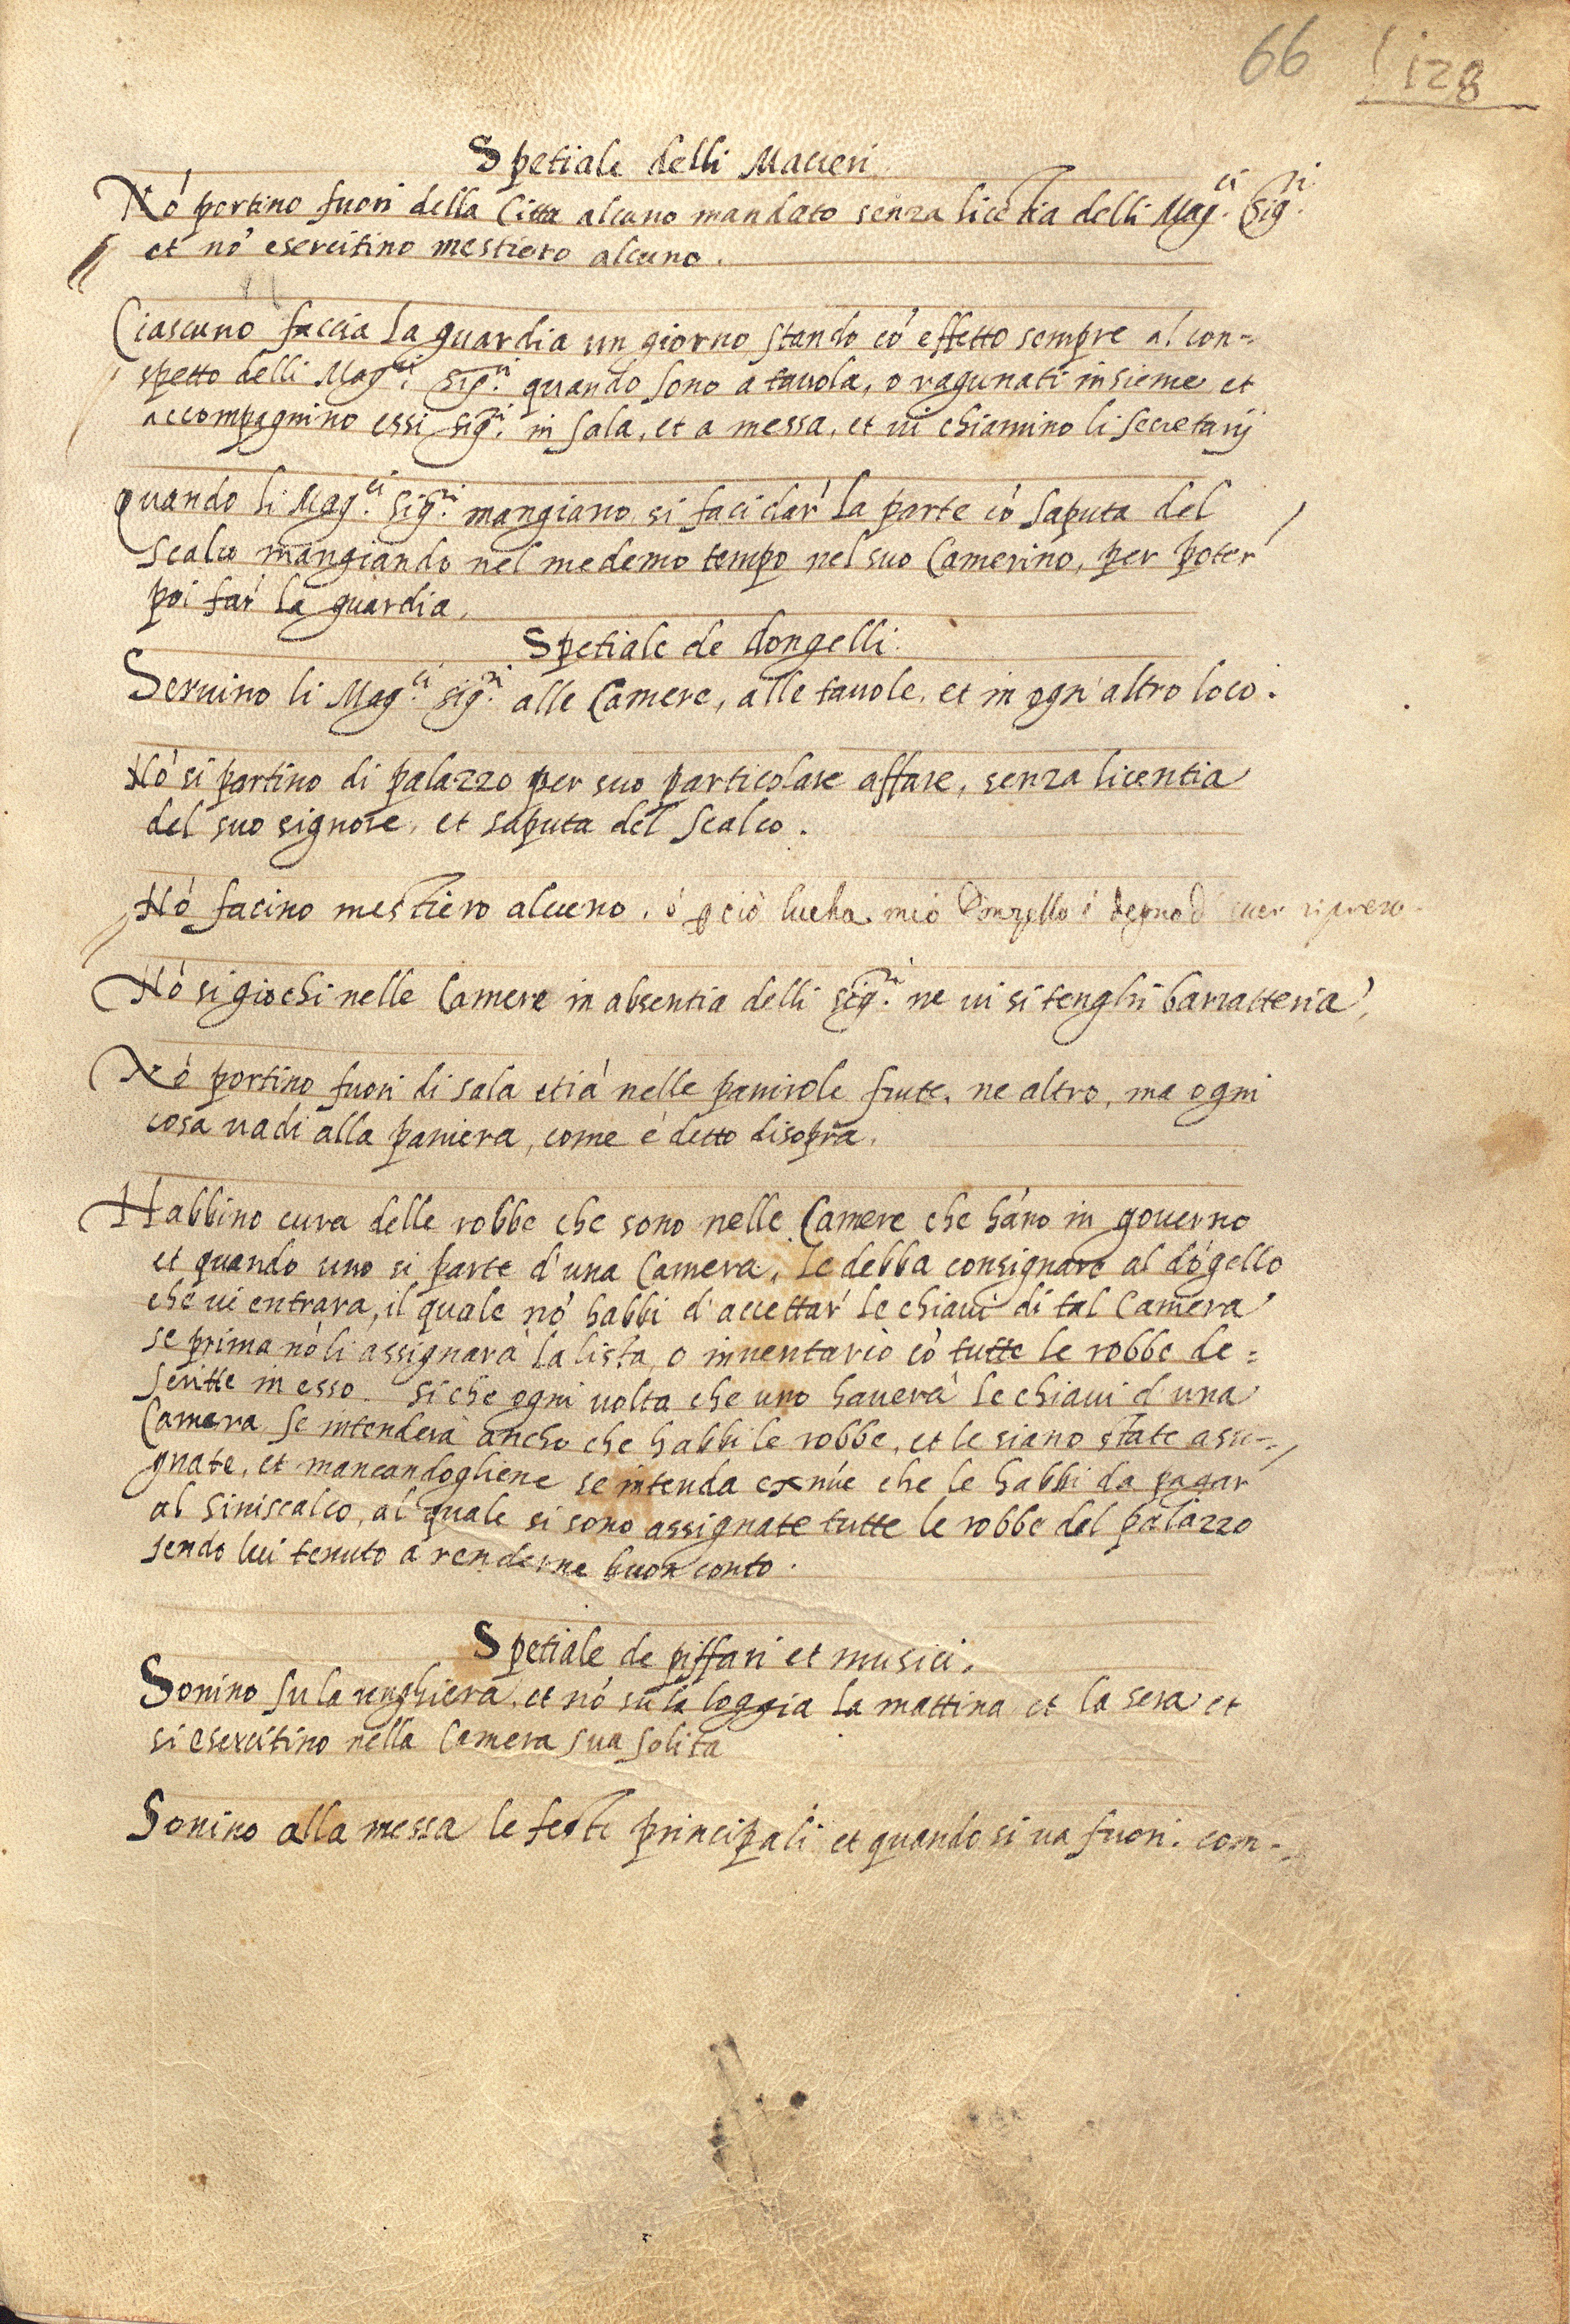 66 128
Spetiale delli Macieri
Nó portino fuori della Citta alcuno mandato senza licétia delli Mag.ci Sig.ri
et nó esercitino mestiero alcuno.
Ciascuno faccia la guardia un giorno stando có effetto sempre al con=
spetto delli Mag.ci Sig.ri quando sono a tauola, o ragunati insieme et
accompagnino essi Sig.ri in sala, et a messa, et ui chiamino li secretarij
Quando li Mag.ci Sig.ri mangiano si faci dar' la parte có saputa del
scalco mangiando nel medemo tempo nel suo Camerino, per poter'
poi far' la guardia.
Spetiale de dongelli.
Seruino li Mag.ci Sig.ri alle Camere, alle tauole, et in ogn' altro loco.
Nó si partino di palazzo per suo particolare affare, senza licentia
del suo signore, et saputa del scalco.
Nó facino mestiero alcuno. ó ꝑ ció lucha mio Donzello é degno d' esser ripreso
Nó si giochi nelle Camere in absentia delli Sig.ri ne ui si tenghi barratteria,
Nó portino fuori di sala etiá nelle panirole frute, ne altro, ma ogni
cosa uadi alla paniera, come é detto disopra.
Habbino cura delle robbe che sono nelle Camere che háno in gouerno
et quando uno si parte d'una Camera, le debba consignare al dógello
che ui entrara, il quale nó habbi d'accettar' le chiaui di tal Camera
se prima nó li assignará la lista o inuentario có tutte le robbe de=
scritte in esso. si che ogni uolta che uno hauerá le chiaui d'una
Camera, se intenderá ancho che habbi le robbe, et le siano state assi=
gnate, et mancandogliene se intenda ex núc che le habbi da pagar
al Siniscalco, al quale si sono assignate tutte le robbe del palazzo
sendo lui tenuto á renderne buon conto.
Spetiale de piffari et musici.
Sonino su la renghiera, et nó su la loggia la mattina et la sera et
si esercitino nella Camera sua solita
Sonino alla messa le feste principali et quando si ua fuori. com=